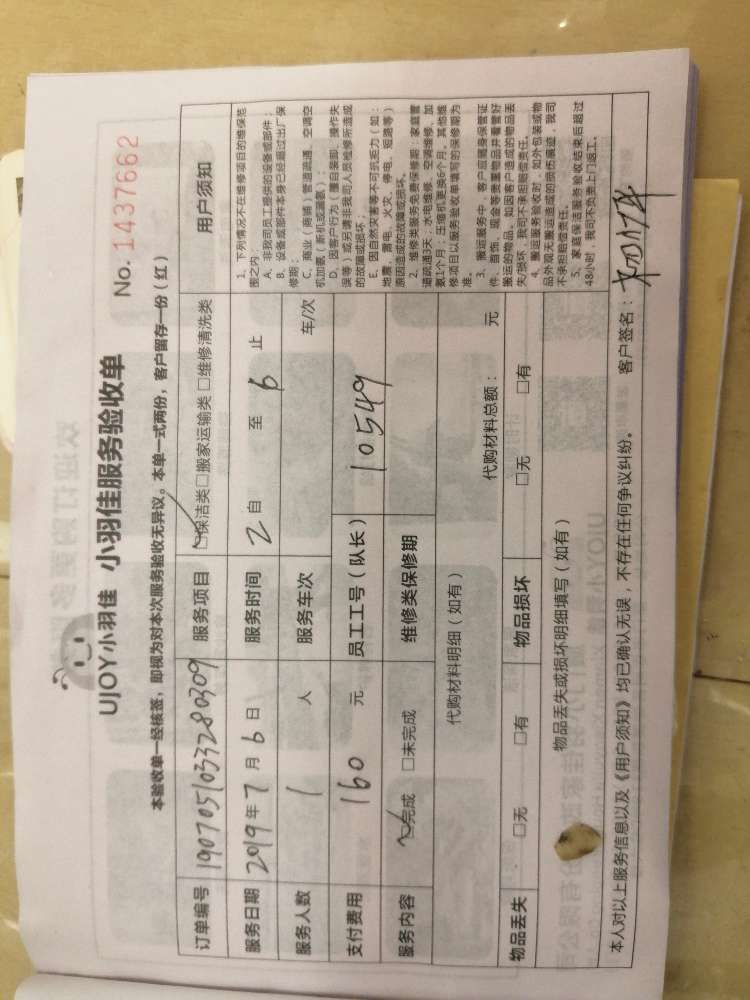 UJOY小羽佳 小羽佳服务验收单
No. 1437662
本验收单一经核签，即视为对本次服务验收无异议。本单一式两份，客户留存一份（红）
订单编号 1907051033280309 服务项目 ☑保洁类□搬家运输类 □维修清洗类
服务日期 2019年7月6日 服务时间 2 自 至 6 止
服务人数 1 人 服务车次 车/次
支付费用 160 元 员工工号（队长） 10549
服务内容 ☑完成 □未完成 维修类保修期
代购材料明细（如有） 代购材料总额： 元
物品丢失 □无 □有 物品损坏 □无 □有
物品丢失或损坏明细填写（如有）
用户须知
1、下列情况不在维修项目的维保范
围之内
A、非我司员工提供的设备或部件；
B、设备或部件本身已经超过出厂保
修期；
C、商业（商铺）管道疏通、空调空
机加氨（新机或漏氨）；
D、因客户行为（擅自装卸、操作失
误等）或另请非我司人员检修所造成
的故障或损坏；
E、因自然灾害等不可抗拒力（如：
地震、雷电、火灾、停电、短路等）
原因造成的故障或损坏。
2、维修类服务免费保修期：家庭管
道疏通3天；水电维修、空调维修、加
氨1个月；压缩机更换6个月。其他维
修项目以服务验收单填写的保修期为
准。
3、搬运服务中，客户应随身保管证
件、首饰、现金等贵重物品并看管好
搬运的物品。如因客户造成的物品丢
失/损坏，我司不承担赔偿责任。
4、搬运服务验收时，如外包装或物
品外观无搬运造成的损伤痕迹，我司
不承担赔偿责任。
5、家庭保洁服务验收结束后超过
48小时，我司不负责上门返工。
本人对以上服务信息以及《用户须知》均已确认无误，不存在任何争议纠纷。 客户签名：